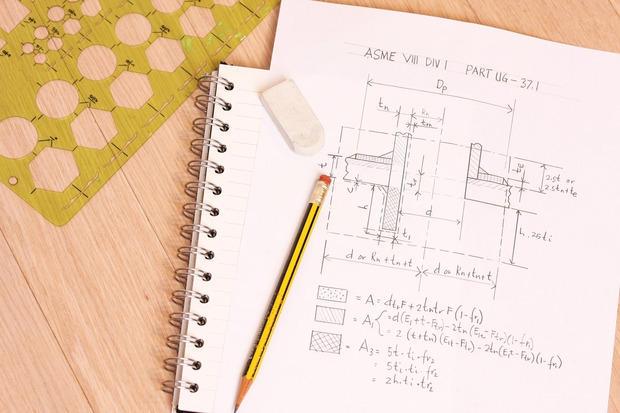 ASME VIII DIV 1 PART UG-37.1
Dp
tn
Rn
trn
2.5t or
2.5tn+te
d
h
t1
h. 2.5ti
d or Rn+tn+t
d or Rn+tn+t
= A = dtrF + 2tntrF (1-fr1)
= A1 = d(E1t-Ftr)-2tn(E1t-Ftr)(1-fr1)
= 2(t+tn)(E1t-Ftr)-2tn(E1t-Ftr)(1-fr1)
= A3 = 5t·ti·fr2
= 5ti·ti·fr2
= 2h·ti·fr2